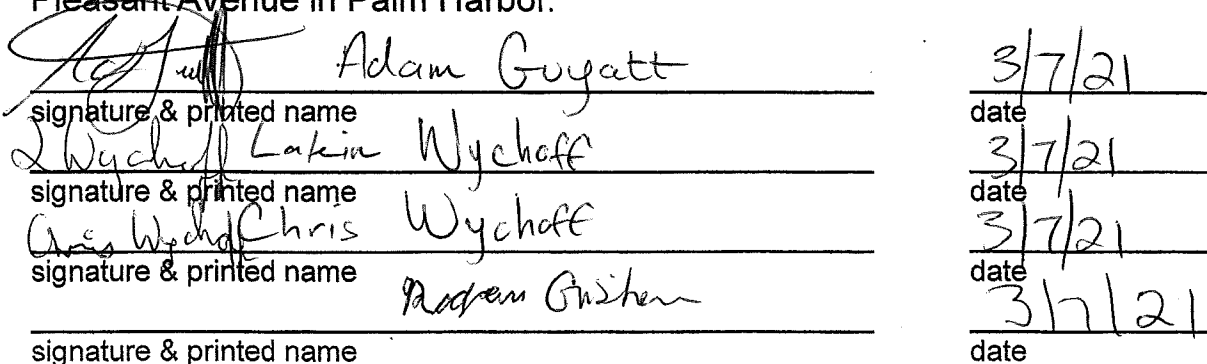 Pleasant Avenue in Palm Harbor.
Adam Guyatt 3/7/21
signature & printed name date
L Wychoff Lakin Wychoff 3/7/21
signature & printed name date
Chris Wychoff Chris Wychoff 3/7/21
signature & printed name date
3/7/21
signature & printed name date